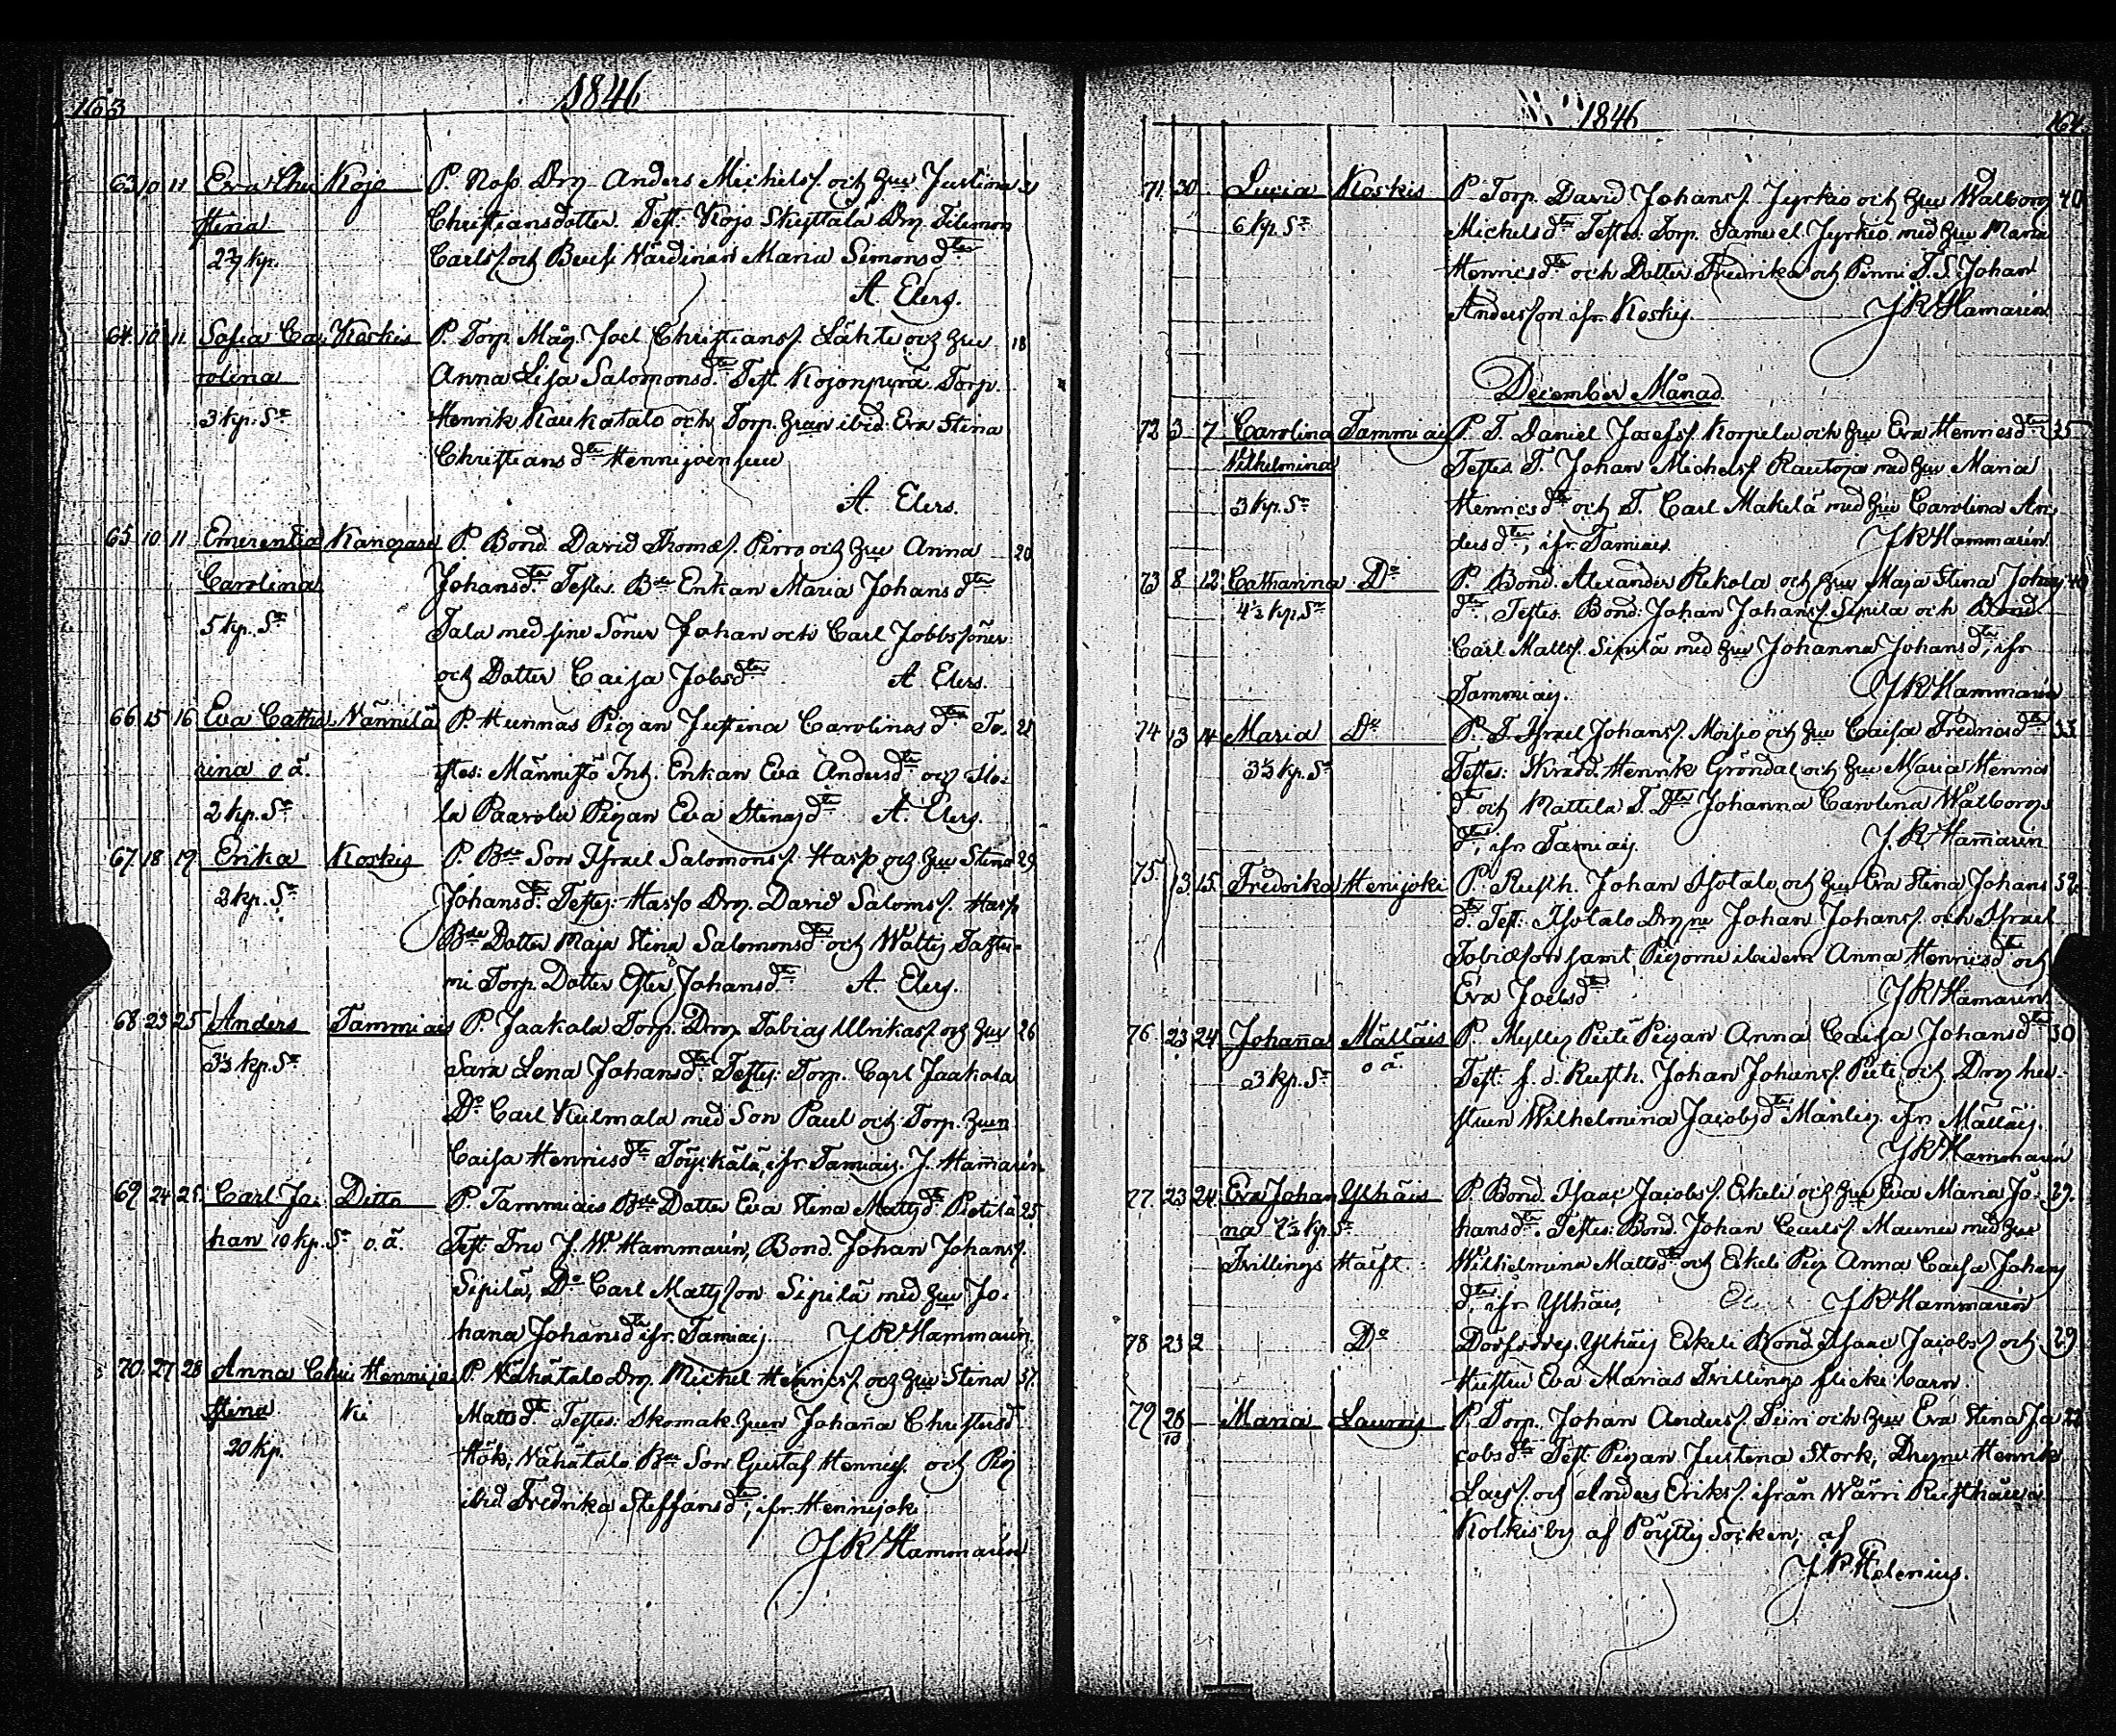 163
1846
63 10 11 Eva Chri Kojo P. Noss Drg Anders Michelss. och Hu Justina 31
stina Christiansdotter. Test. Kojo Skyttälä Drg. Filemon
2 kp. Carlss. och Nårdinin Maria Simonsdter
A. Elers.
64 10 11 Sofia Ca Koskis P. Torp. Måg. Joel Christianss. Lähte och Hu 18
rolina Anna Lisa Salomonsdter Test. Kojonperä Torp.
3 kp. Sr Henrik Kaukatalo och Torp. Hun ibid. Eva Stina
Christiansdter Hennijoensuu
A. Elers.
65 10 11 Emerentia Kangare P. Bond David Thomæs. Pirro och Hu Anna 20
Carolina Johansdtr Testes. Bde Enkan Maria Johansdter
5 kp. Sr Tala med sine Söner Johan och Carl Jobbssöner
och Dotter Caisa Jobsdter A. Elers.
66 15 16 Eva Catha Männilä P. Hunnas Pigan Justina Carolinasdter Te 21
rina o ä. stes: Männistö Inh. Enkan Eva Andersdter och Ilo
2 kp. Sr la Paavola Pigan Eva Stinasdter A. Elers.
67 18 19 Erika Koskis P. Bde Son Israel Salomonss. Hasso och Hu Stina 29
2 kp. Sr Johansd. Testes: Hasso Drg. David Saloms. Hasso
Bde Dotter Maja Stina Salomonsdter och Waltis
mi Torp. Dotter Ester Johansdter A. Elers.
68 23 25 Anders Tammiais P. Jaakola Torp. Drg. Tobias Ulrikass. och Hu 26
3½ kp. Sr Sara Lena Johansdtr Testes: Torp. Carl Jaakola
Do Carl Kulmala med Son Paul och Torp. Hun
Caisa Henricsdtr Töyckälä, ifr. Tamiais. J. Hamarin
69 24 25 Carl Jo Ditto P. Tammiais Bde Dotter Eva Stina Mattsd. Pietilä 25
han 10 kp. Sr o. ä. Test. J. W. Hammarin, Bond. Johan Johanss.
Sipilä, Do Carl Mattsson Sipilä med Hu Jo
hana Johansdtr ifr. Tamiais. J R Hammarin
70 27 28 Anna Chri Hennijo P. Nähätalo Drg. Michel Henricss. och Hu Stina 37
stina ki Mattsdtr Testes: Skomak. Hun Johaña Christersd.
20 kp. Hök, Nähätalo Bde Son Gustaf Henricss. och Pig
ibid Fredrika Steffansdtr, ifr. Hennijoki
J R Hammarin
1846
164
71 30 Lucia Koskis P. Torp. David Johanss. Jyrkiö och Hu Walborg 40
6 kp. Sr Michelsdtr Testes. Torp. Samuel Jyrkiö med Hu Maria
Henricsdtr och Dotter Fredrika och T. S. Johan
Andersson ifr. Koskis. J R Hamarin
December Månad
72 3 7 Carolina Tammiais P. T. Daniel Josefss. Korpela och Hu Eva Henricsdtr 35
Wilhelmina Testes T. Johan Michelss. Rautoja med Hu Maria
3 kp. Sr Henricsdtr och T. Carl Makelä med Hu Carolina An
dersdtr, ifr. Tamiais. J R Hammarin
73 8 12 Catharina Do P. Bond. Alexander Rekola och Hu Maja Stina Johans 40
4½ kp. Sr dtr. Testes. Bond: Johan Johanss. Sipilä och Bond.
Carl Mattss. Sipilä med Hu Johanna Johansdtr, ifr
Tammiais. J R Hammarin
74 13 14 Maria Do P. T. Israel Johanss. Moisio och Hu Caisa Fredricsdtr 33
3½ kp. Sr Testes: Skrädd. Henrik Gröndal och Hu Maria Henrics
dtr och Mattila T. Dtr Johanna Carolina Walborgs
dtr, ifr Tamiais. J. R. Hammarin
75 13 15 Fredrika Henijoki P. Rusth. Johan Isotalo och Hu Eva Stina Johans 39
d. Test: Isotalo Drgne Johan Johanss. och Israel
Tobiæson samt Pigorne ibidem Anna Henricsdtr och
Eva Joelsdtr J R Hamarin
76 23 24 Johaña Mälläis P. Myllis Peite Pigan Anna Caisa Johansdtr 30
3 kp. Sr o ä. Test: f. d. Rusth. Johan Johanss. Peite, och Drg hu
strun Wilhelmina Jacobsdtr Mänlis, ifr Mälläis.
J R Hammarin
77 23 24 Eva Johan Ylhäis P. Bond. Isaac Jacobss. Erkele och Hu Eva Maria Jo 29
na 7½ kp. Sr hansdtr. Testes. Bond. Johan Carlss. Maunu med Hu
Trillings Hälft Wilhelmina Mattsdtr och Erkele Pig Anna Caisa Johans
dtr, ifr Ylhäis, J R Hammarin
78 23 2 Do Dödf. Ylhäis Erkele Bond Isaac Jacobss. och 29
Hustru Eva Marias Trillings flicke barn.
79 26/10 Maria Laurois P. Torp. Johan Anderss. och Hu Eva Stina Ja
cobsdtr Test Pigan Justina Stork, Drgne Henrik
Larss. och Anders Erikss. ifrån Wärri Rusthåll
Kolkisby af Pöytis Socken, af
J. R. Helenius.